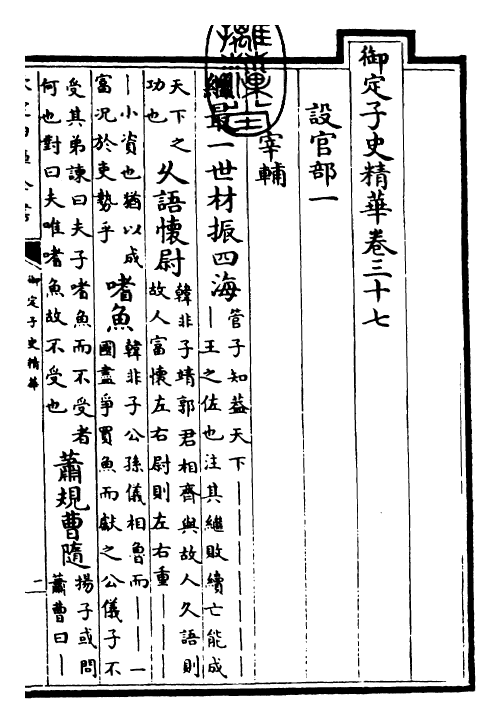 御定子史精華卷三十七
設官部一
宰輔
繼最一世材振四海 管子知益天下｜｜｜｜｜｜｜｜｜王之佐也注其繼敗續亡能成
天下之功也 久語懷尉 韓非子靖郭君相齊與故人久語則故人富懷左右尉則左右重｜｜｜｜
｜小資也猶以成富況於吏勢乎 嗜魚 韓非子公孫儀相魯而｜｜一國盡爭買魚而獻之公儀子不
受其弟諫曰夫子嗜魚而不受者何也對曰夫唯嗜魚故不受也 蕭規曹隨 揚子或問蕭曹曰｜
御定子史精華